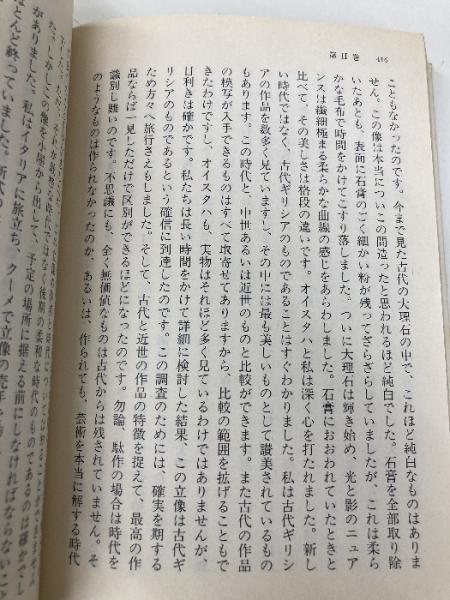 第Ⅱ巻
416
こともなかったのです。今まで見た古代の大理石の中で、これほど純白なものはありま
せん。この像は本当についこの間造ったと思われるほど純白でした。石膏を全部取り除
いたあとも、表面に石膏のごく細かい粉が残ってざらざらしていましたが、これは柔ら
かな毛布で時間をかけてこすり落しました。ついに大理石は輝き始め、光と影のニュア
ンスは繊細極まる柔らかな曲線の感じをあらわしました。石膏におおわれていたときと
比べて、その美しさは格段の違いです。オイスタハと私は深く心を打たれました。新し
い時代ではなく、古代ギリシアのものであることはすぐわかりました。私は古代ギリシ
アの作品を数多く見ていますし、その中には最も美しいものとして讃美されているもの
もあります。この時代と、中世あるいは近世のものと比較ができます。また古代の作品
の模写が入手できるものはすべて取寄せてありますから、比較の範囲を拡げることもで
きたわけですし、オイスタハも、実物はそれほど多く見ているわけではありませんが、
目利きは確かです。私たちは長い時間をかけて詳細に検討した結果、この立像は古代ギ
リシアのものであるという確信に到達したのです。この調査のためには、確実を期する
ため方々へ旅行さえもしました。そして、古代と近世の作品の特徴を捉えて、最高の作
品ならば一見しただけで区別ができるほどになったのです。勿論、駄作の場合は時代を
識別し難いのです。不思議にも、全く無価値なものは古代からは残されていません。そ
のようなものは作られなかったのか、あるいは、作られても、芸術を本当に解する時代
がありました。私はイタリアに旅立ち、クーメで立像の売手を